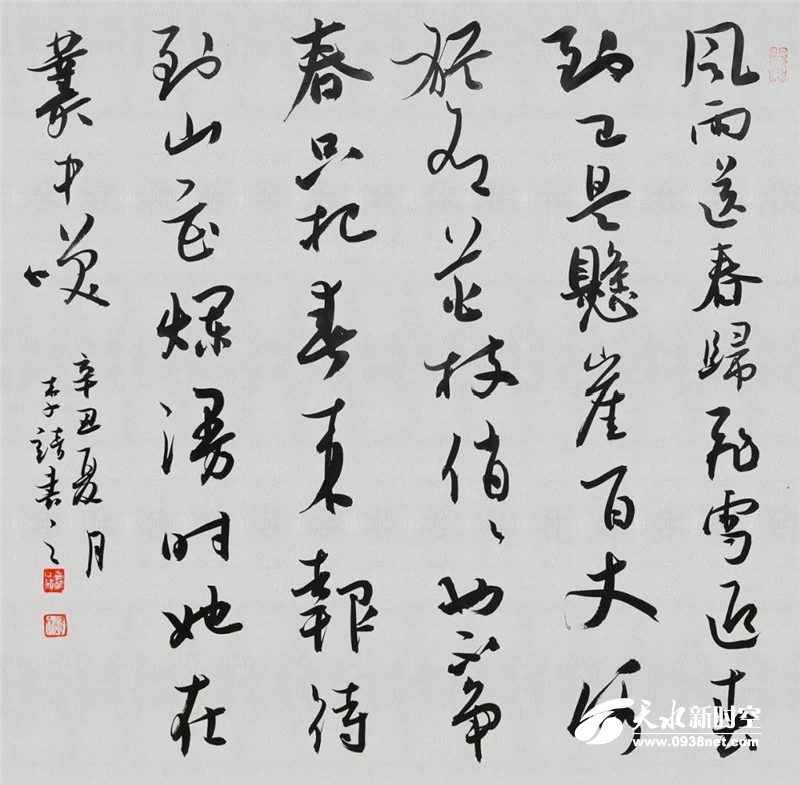 风雨送春歸飛雪迎春
到已是懸崖百丈冰
猶有花枝俏〻也不爭
春只把春来報待
到山花爛漫时她在
叢中咲
辛丑夏月
李 書之
天水新时空
www.0938net.com